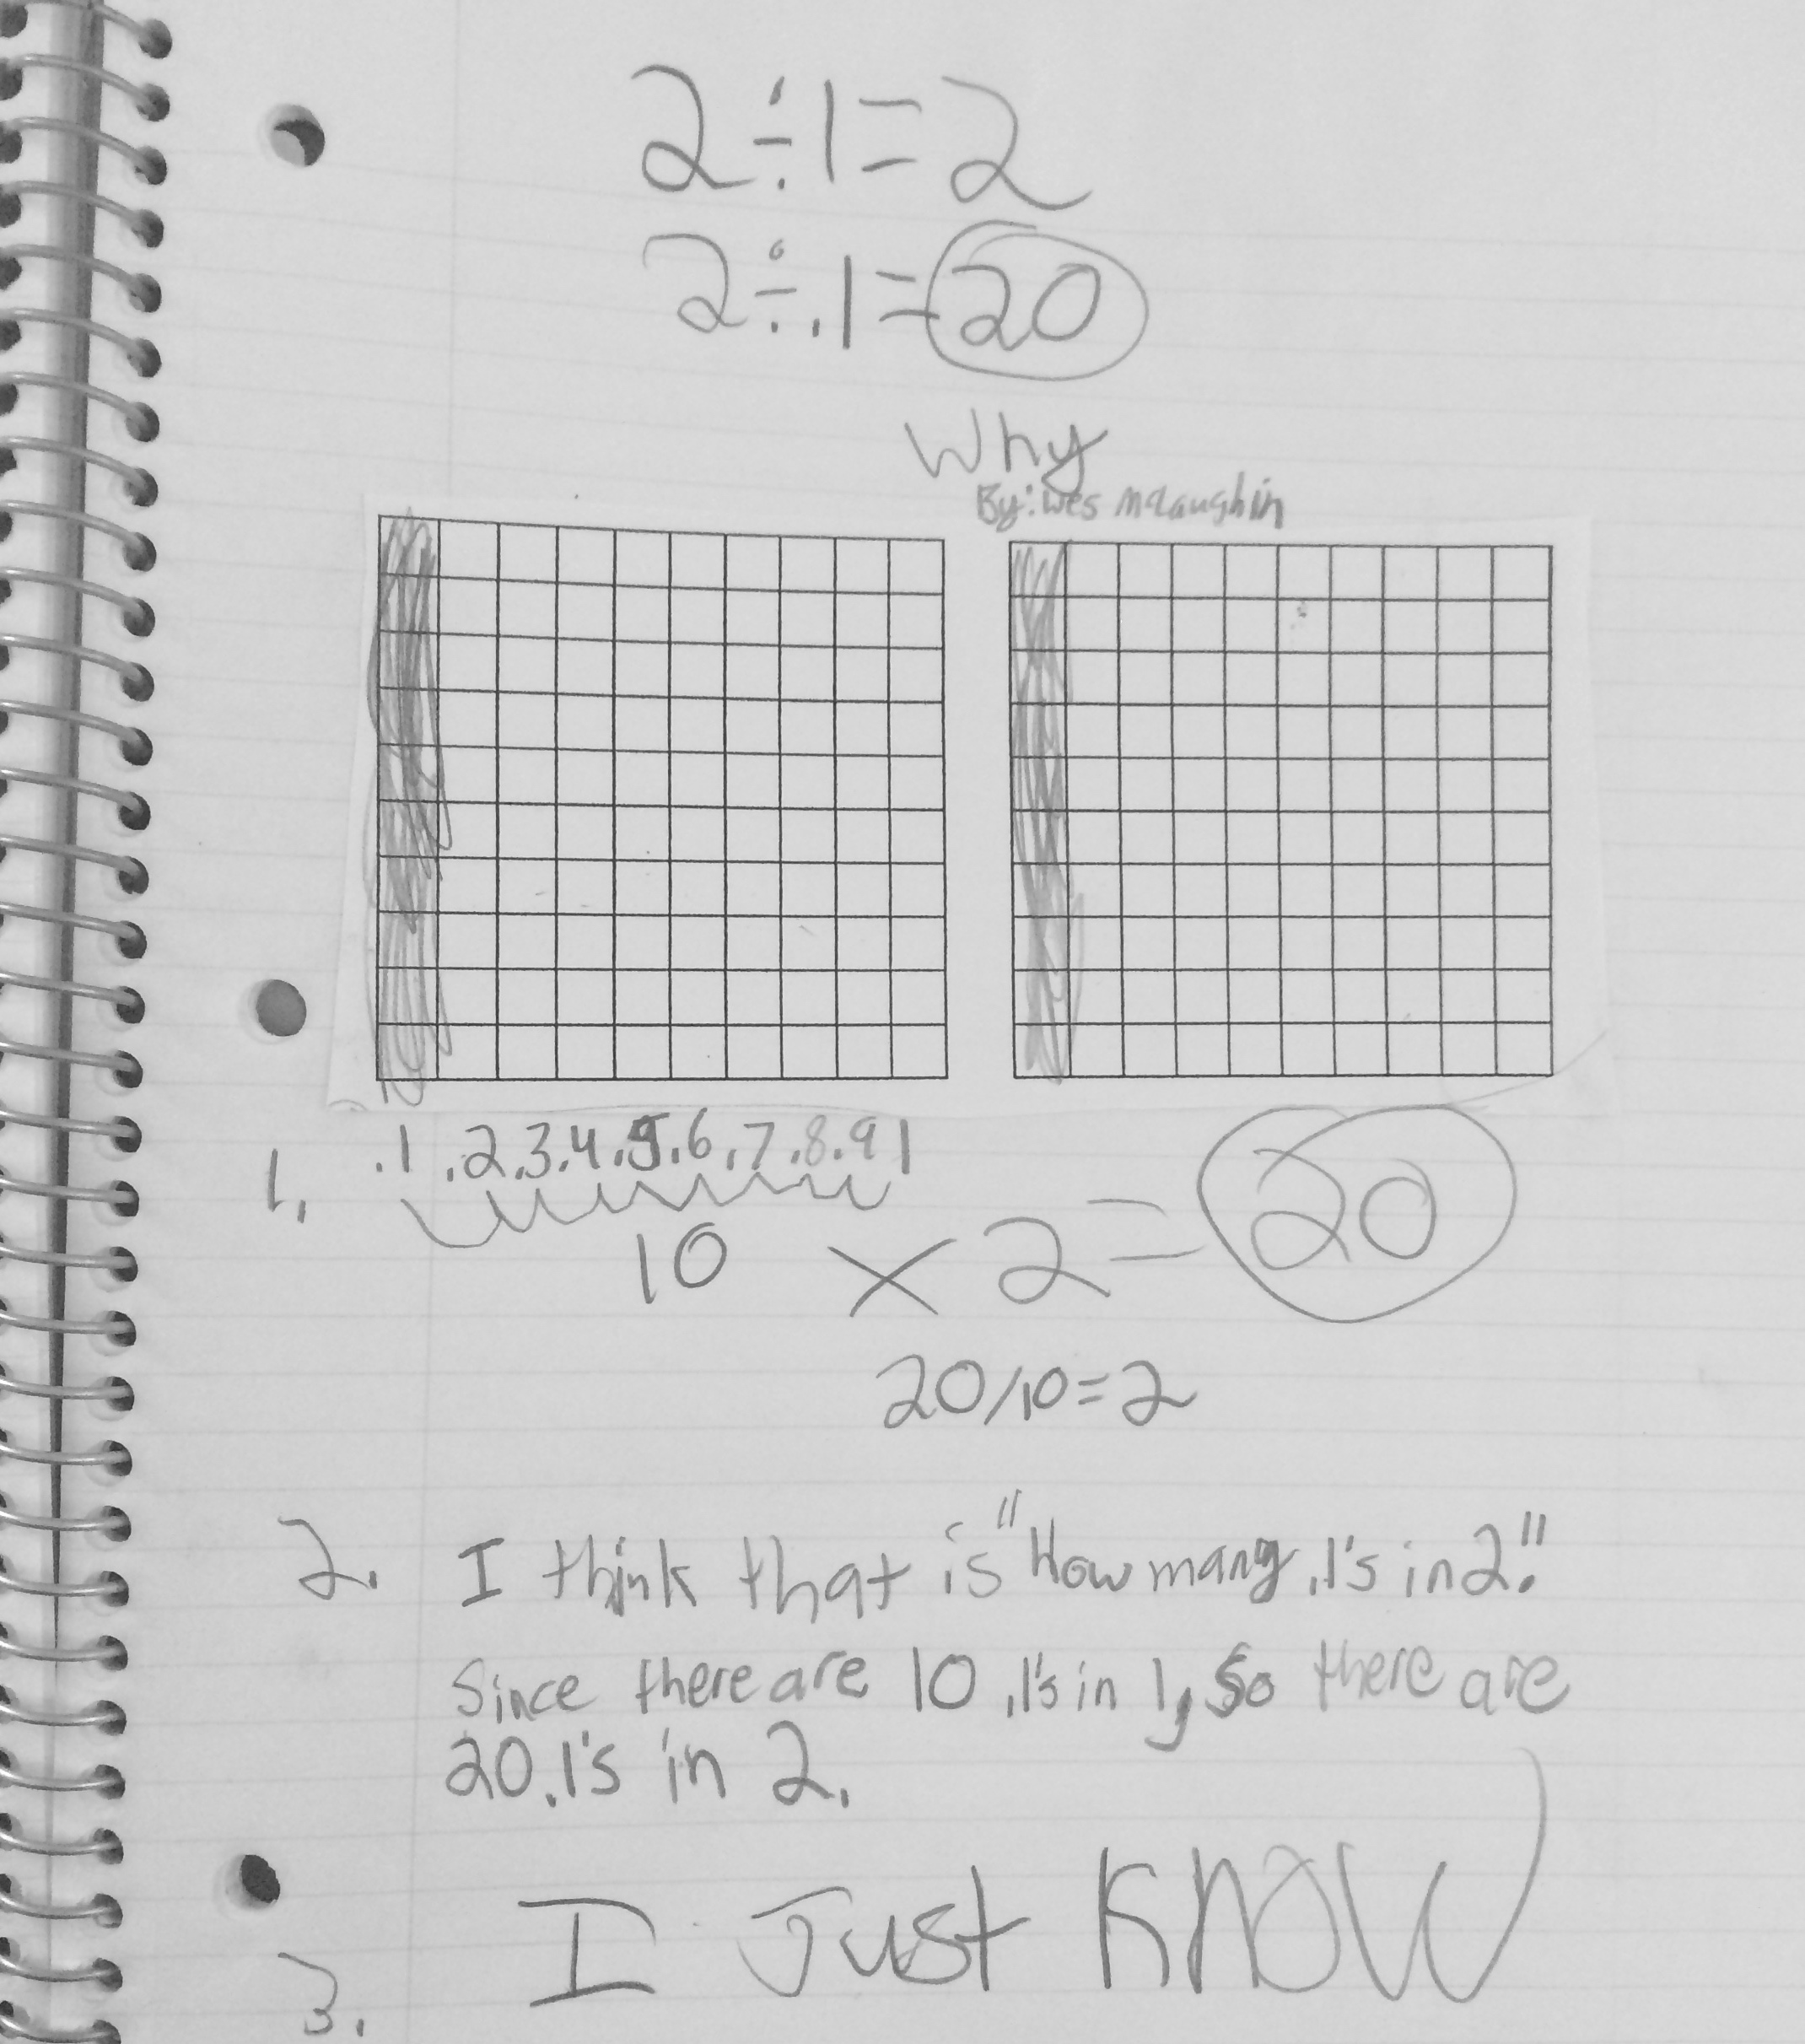 2÷1=2
2÷.1=20
Why
By: Wes McLaughin
1. .1 .2 .3 .4 .5 .6 .7 .8 .9 1
10 × 2 = 20
20/10=2
2. I think that is "How many .1's in 2."
Since there are 10 .1's in 1, so there are
20 .1's in 2.
3. I Just Know